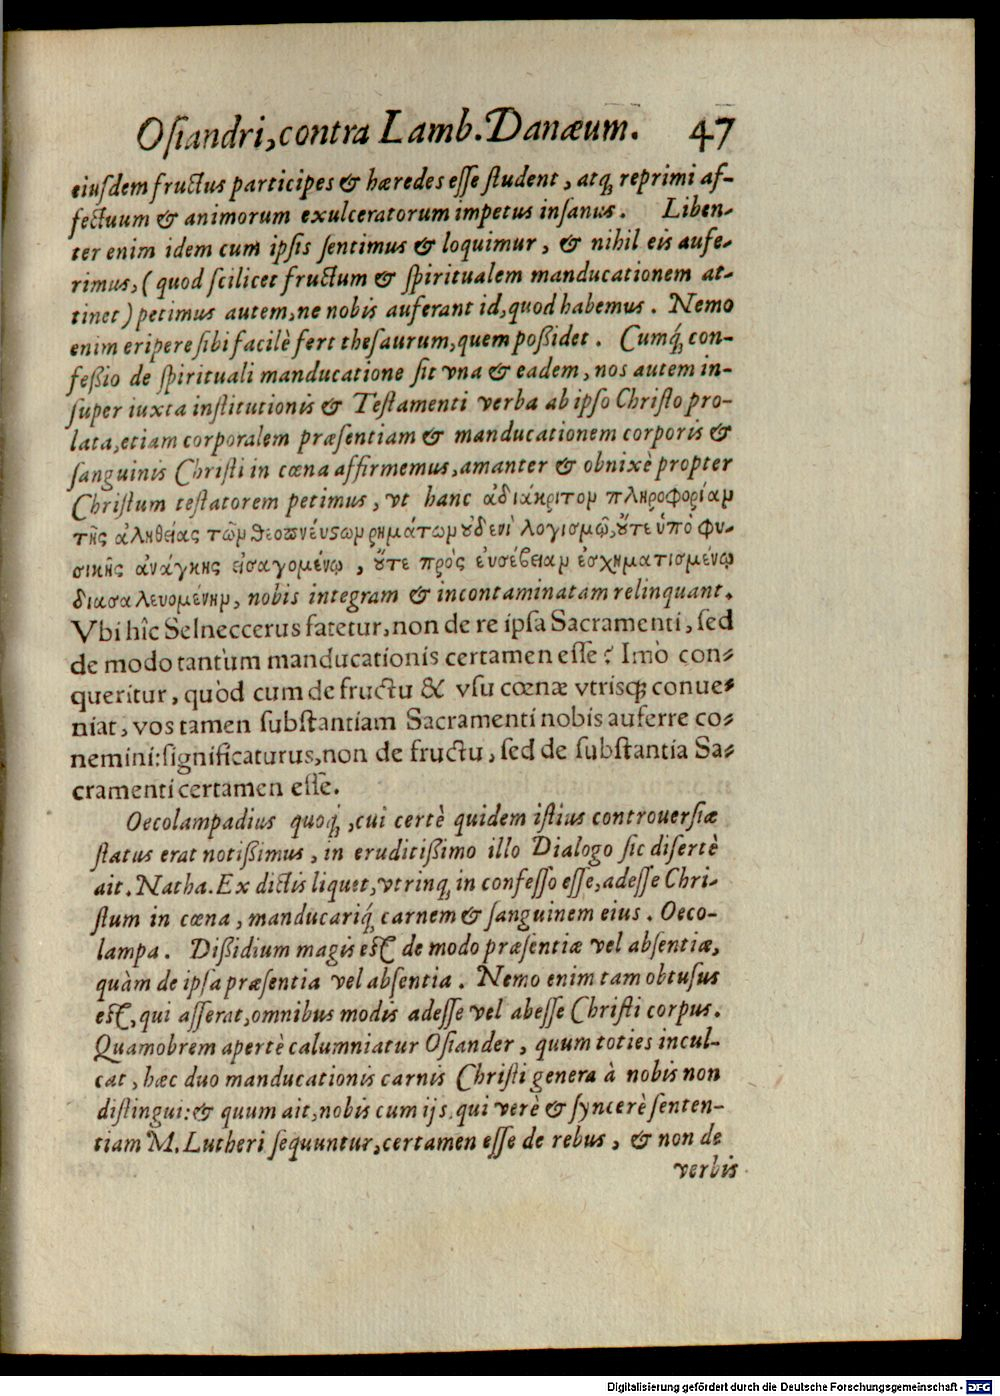 Osiandri, contra Lamb. Danæum. 47
eiusdem fructus participes & hæredes esse student, atq; reprimi af-
fectuum & animorum exulceratorum impetus insanus. Liben-
ter enim idem cum ipsis sentimus & loquimur, & nihil eis aufe-
rimus, (quod scilicet fructum & spiritualem manducationem at-
tinet) petimus autem, ne nobis auferant id, quod habemus. Nemo
enim eripere sibi facilè fert thesaurum, quem poßidet. Cumq́; con-
feßio de spirituali manducatione sit vna & eadem, nos autem in-
super iuxta institutionis & Testamenti verba ab ipso Christo pro-
lata, etiam corporalem præsentiam & manducationem corporis &
sanguinis Christi in cœna affirmemus, amanter & obnixè propter
Christum testatorem petimus, vt hanc ἀδιάκριτον πληροφορίαν
τῆς ἀληθείας τῶν θεοπνεύςων ρημάτων ȣ̓δενὶ λογισμῷ, ȣ̓́τε ὑπὸ φυ-
σικῆς ἀνάγκης εἰσαγομένῳ, ȣ̓́τε πρὸς ἐυσέβειαν ἐσχηματισμένῳ
διασαλευομένην, nobis integram & incontaminatam relinquant.
Vbi hîc Selneccerus fatetur, non de re ipsa Sacramenti, sed
de modo tantùm manducationis certamen esse? Imò con-
queritur, quòd cum de fructu & vsu cœnæ vtrisq; conue-
niat, vos tamen substantiam Sacramenti nobis auferre co-
nemini: significaturus, non de fructu, sed de substantia Sa-
cramenti certamen esse.
Oecolampadius quoq́;, cui certè quidem istius controuersiæ
status erat notißimus, in eruditißimo illo Dialogo sic disertè
ait. Natha. Ex dictis liquet, vtrinq; in confesso esse, adesse Chri-
stum in cœna, manducariq́; carnem & sanguinem eius. Oeco-
lampa. Dißidium magis est de modo præsentiæ vel absentiæ,
quàm de ipsa præsentia vel absentia. Nemo enim tam obtusus
est, qui asserat, omnibus modis adesse vel abesse Christi corpus.
Quamobrem apertè calumniatur Osiander, quum toties incul-
cat, hæc duo manducationis carnis Christi genera à nobis non
distingui: & quum ait, nobis cum ijs, qui verè & syncerè senten-
tiam M. Lutheri sequuntur, certamen esse de rebus, & non de
verbis
Digitalisierung gefördert durch die Deutsche Forschungsgemeinschaft - DFG